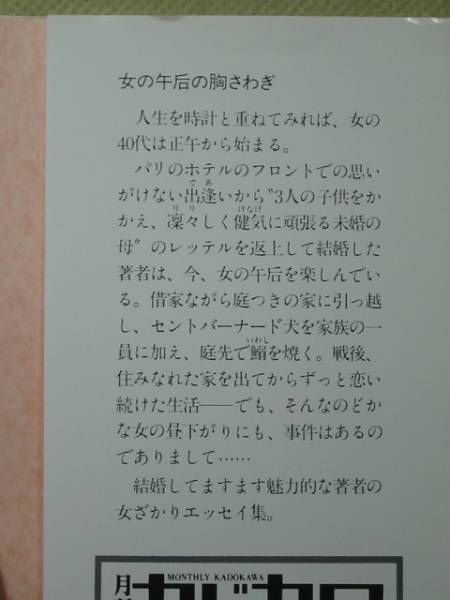 女の午后の胸さわぎ
人生を時計と重ねてみれば、女の
40代は正午から始まる。
パリのホテルのフロントでの思い
がけない出逢いから〝3人の子供をか
かえ、凜々しく健気に頑張る未婚の
母〟のレッテルを返上して結婚した
著者は、今、女の午后を楽しんでい
る。借家ながら庭つきの家に引っ越
し、セントバーナード犬を家族の一
員に加え、庭先で鰯を焼く。戦後、
住みなれた家を出てからずっと恋い
続けた生活――でも、そんなのどか
な女の昼下がりにも、事件はあるの
でありまして……
結婚してますます魅力的な著者の
女ざかりエッセイ集。
MONTHLY KADOKAWA
月
カドカワ